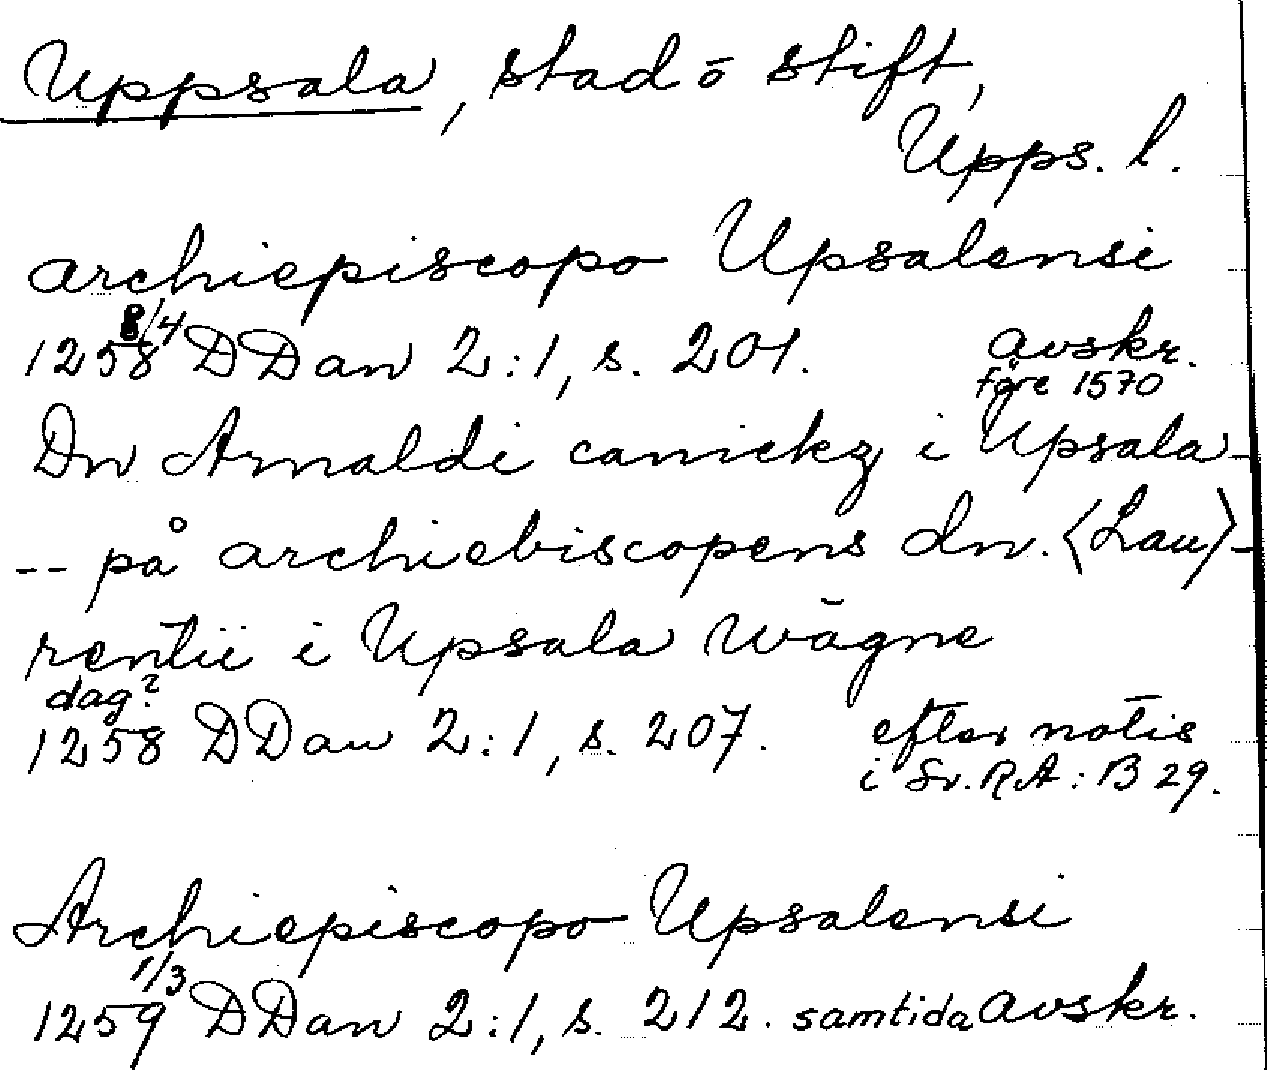 Uppsala, stad o stift,
Upps. l.
archiepiscopo Upsalensi
1258 8/4 DDan 2:1, s. 201. avskr. före 1570
Dn Arnaldi canickz i Upsala -
-- på archiebiscopens dn. <Lau>-
rentii i Upsala wägne
dag?
1258 DDan 2:1, s. 207. efter notis
i Sv. RA: B 29.
Archiepiscopo Upsalensi
1259 1/3 DDan 2:1, s. 212. samtida avskr.